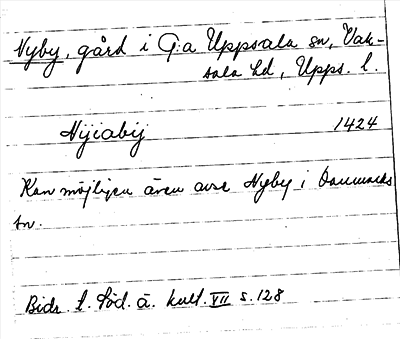 Nyby, gård i G:a Uppsala sn, Vak-
sala hd, Upps. l.
Nijiabij 1424
Kan möjligen även avse Nyby i Danmarks
sn.
Bidr. t. Söd. ä. kult. VII s. 128